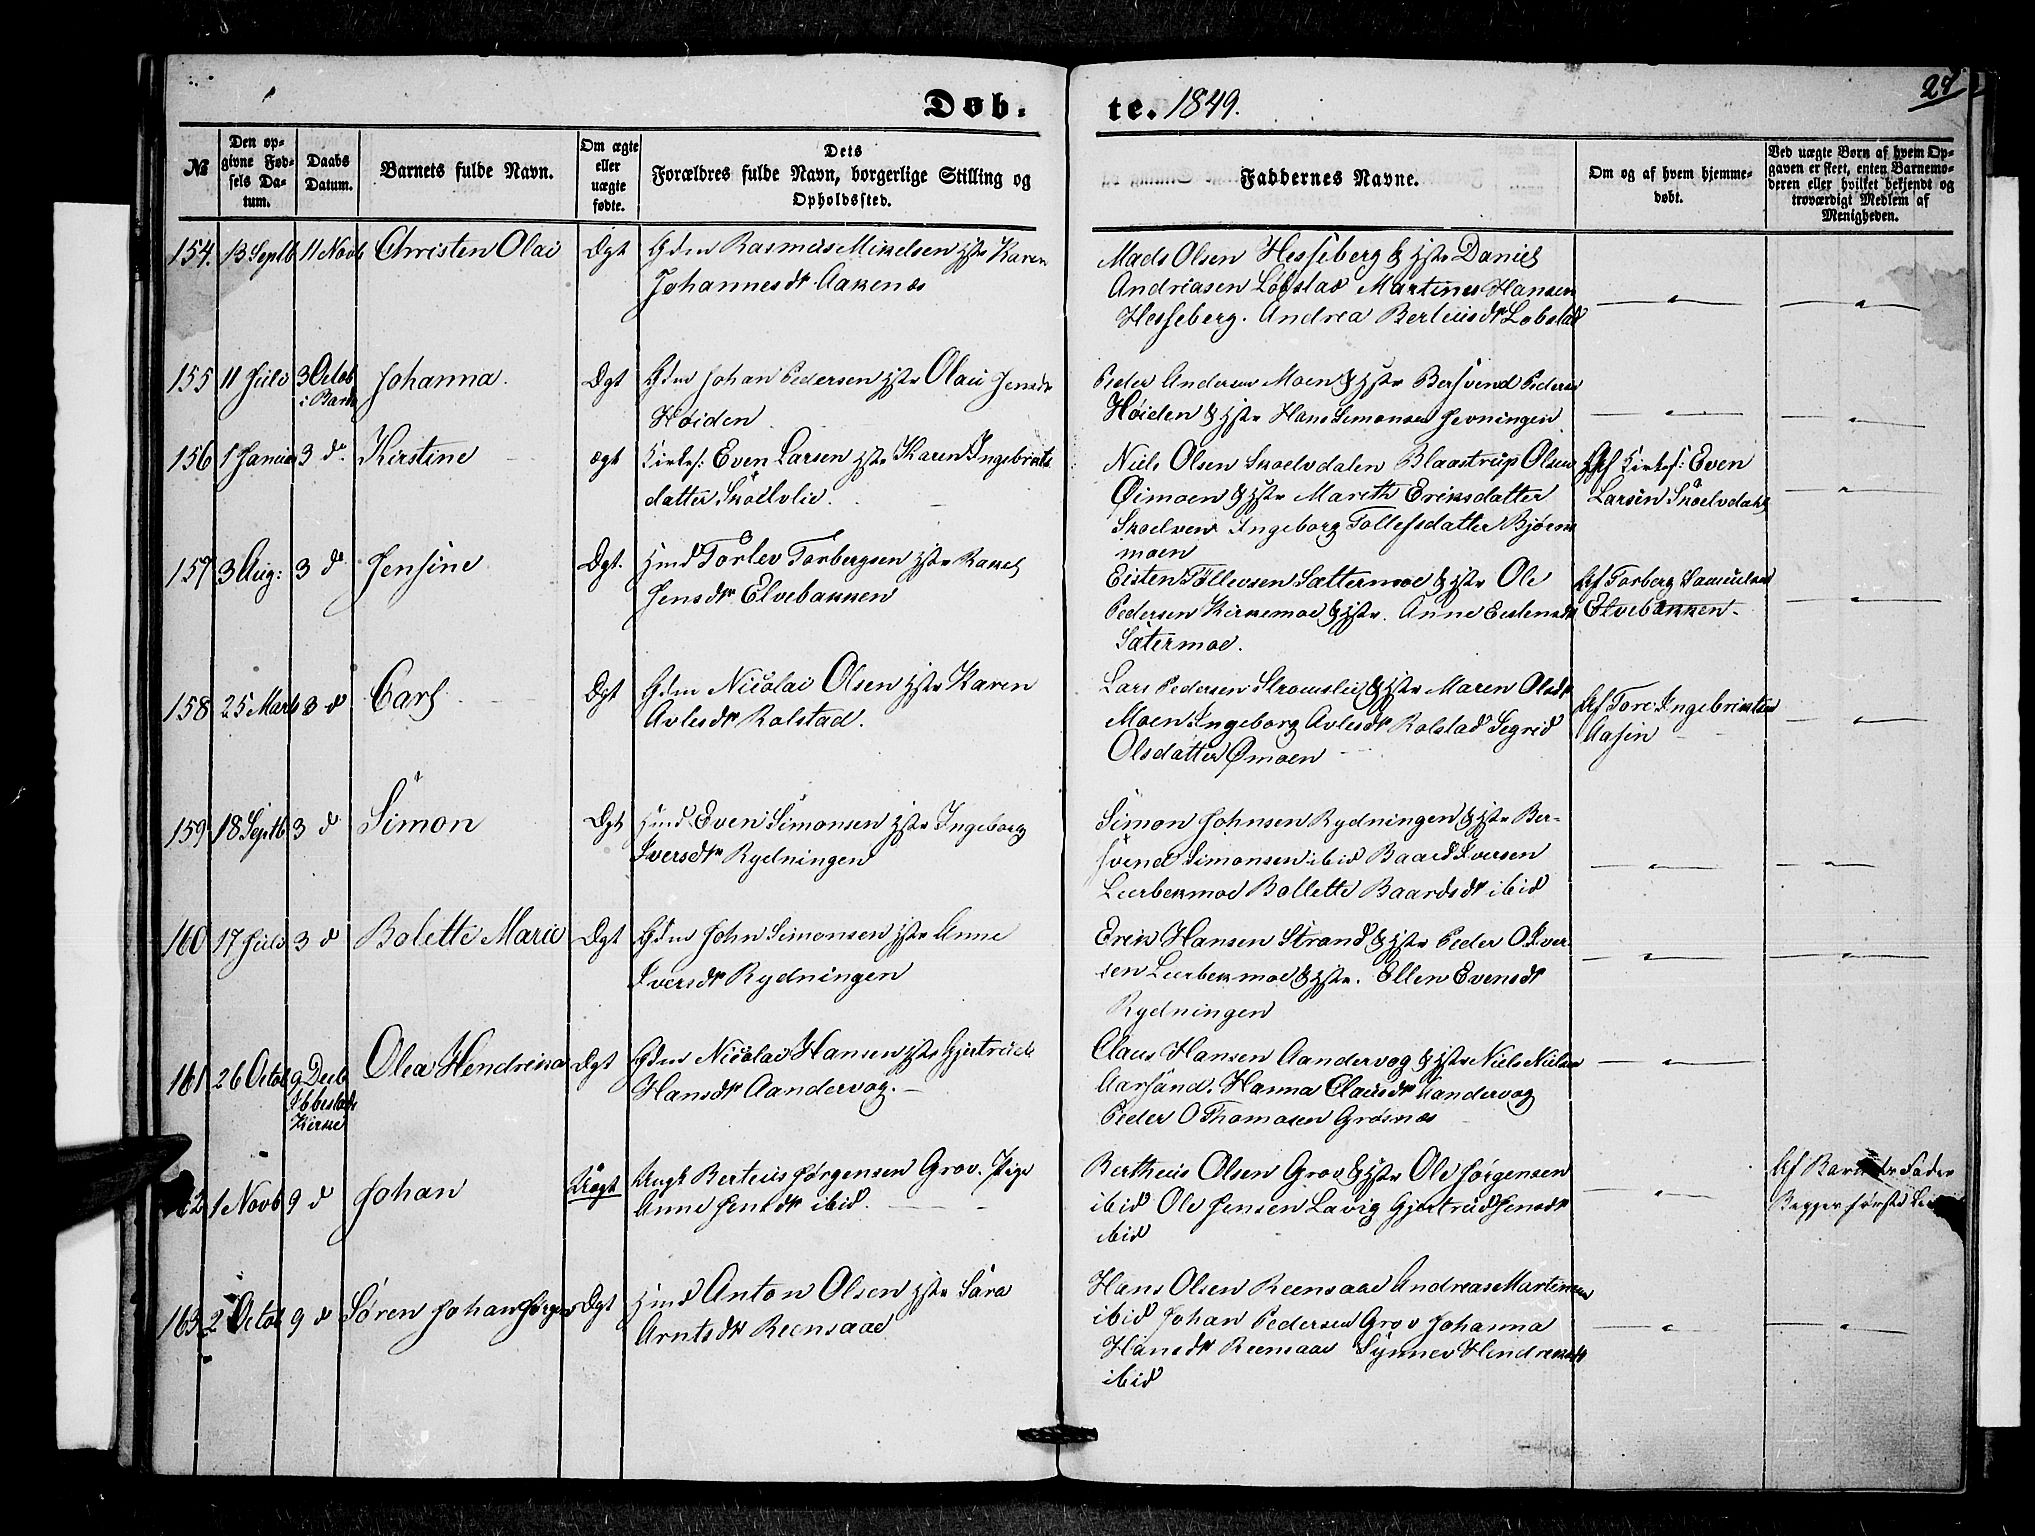 Døb-te. 1849.
24
№
Den opgivne Fødsels Datum.
Daabs Datum.
Barnets fulde Navn.
Om ægte eller uægte fødte.
Dets Forældres fulde Navn, borgerlige Stilling og Opholdssted.
Faddernes Navne.
Om og af hvem hjemmedøbt.
Ved uægte Børn af hvem Opgaven er skeet, enten Barnemoderen eller hvilket bekjendt og troværdigt Medlem af Menigheden.
154. 13 Septb 11 Novb Christen Olai Ægt
Gdm Rasmus Mikelsen Hstr Karen
Johannesdtr Aakenæs
Mads Olsen Hesseberg & Hstr Daniel
Andreasen Løbstad Martinus Hansen
Hesseberg. Andrea Berteusdtr Løbstad
155 11 Juli 3 Octob i Bardo Johanna. Ægt
Gdm Johan Pedersen Hstr Olau Jensdtr
Høiden
Peder Andersen Moen & Hstr Bersvend Pedersen
Høiden & Hstr Hans Simonsen Jevningen
156 1 Januar 3 d. Kirstine ægt
Kirkes: Even Larsen Hstr Karen Ingebrikts
datter Skoelvlie.
Niels Olsen Skoelvdalen Blaastrup Olsen
Øimoen & Hstr Mareth Eriksdatter
Skoelven Ingeborg Tollefsdatter Bjørn
moen
Af Kirkes: Even
Larsen Skoelvdahl
157 3 Aug: 3 d Jensine Ægt.
Hmd Torlev Torbergsen Hstr Rakel
Jensdtr Elvebakken
Eisten Tollevsen Sættermoe & Hstr Ole
Pedersen Kirkemoe & Hstr. Anne Eistensdtr
Sætermoe.
Af Torberg Samuelsen
Elvebakken
158 25 Marts 3 d Carl Ægt
Gdm Nicolai Olsen Hstr Karen
Avlesdtr Rolstad.
Lars Pedersen Strømslie & Hstr Maren Olsdtr
Moen Ingeborg Avlesdtr Rolstad Segrid
Olsdatter Ømoen
Af Tore Ingebriktsen
Aasen
159 18 Septb 3 d Simon Ægt
Hmd. Even Simonsen Hstr Ingeborg
Iversdtr Rydningen
Simon Johnsen Rydningen & Hstr Ber-
svend Simonsen ibid Baard Iversen
Leerbekmoe Bollette Baardsdtr ibid
160 17 Juli 3 d Bolette Marie Ægt
Gdm John Simonsen Hstr Anne
Iversdtr Rydningen
Erik Hansen Strand & Hstr Peder O Iver-
sen Leerbekmoe & Hstr. Ellen Evensdtr
Rydningen
161. 26 Octob 9 Decb Ibbestads Kirke Olea Hendrikka Ægt
Gdm Nicolai Hansen Hstr Gjertrude
Hansdtr Aandervog.
Claus Hansen Aandervog & Hstr Niels Nielsen
Aarsand. Hanna Clausdtr Aandervog
Peder O Thomasen Grøsnæs
162 1 Novb 9 d Johan Uægt
Ungk Berteus Jørgensen Grov. Pige
Anne Jensdtr ibid.
Bertheus Olsen Grov & Hstr Ole Jørgensen
ibid Ole Jensen Lavig Gjertrud Jensdtr
ibid
Af Barnets Fader
Begges første Leie
163 2 Octob 9 d Søren Johan Jørgen Ægt
Hmd Anton Olsen Hstr Sara
Arntsdtr Reensaae
Hans Olsen Reensaae Andreas Martinsen
ibid Johan Pedersen Grov Johanna
Hansdtr Reensaae Synnev Hendriksdtr
ibid